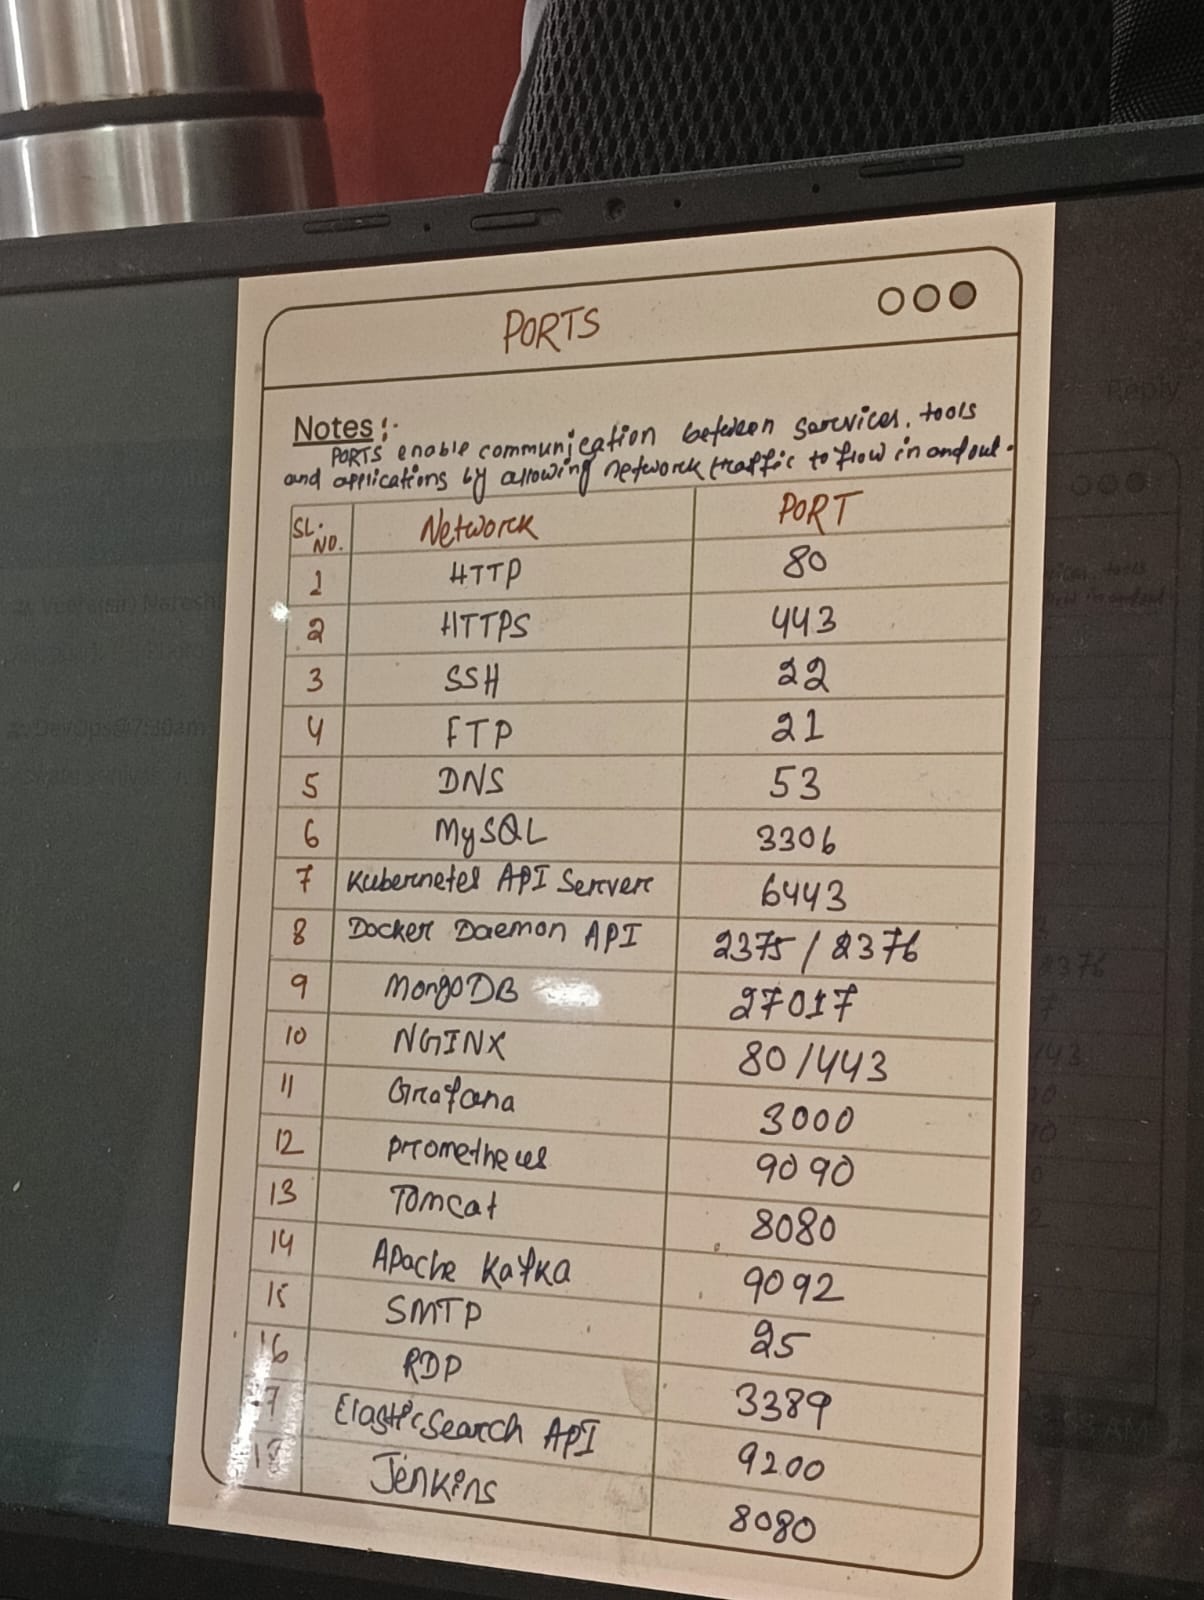 PORTS
Notes:-
PORTS enable communication between services, tools
and applications by allowing network traffic to flow in and out.
SL. NO. Network PORT
1 HTTP 80
2 HTTPS 443
3 SSH 22
4 FTP 21
5 DNS 53
6 MySQL 3306
7 Kubernetes API Server 6443
8 Docker Daemon API 2375 / 2376
9 MongoDB 27017
10 NGINX 80 / 443
11 Grafana 3000
12 Prometheus 9090
13 Tomcat 8080
14 Apache Kafka 9092
15 SMTP 25
16 RDP 3389
17 ElasticSearch API 9200
18 Jenkins 8080
Reply
DevOps@7:30am
AM